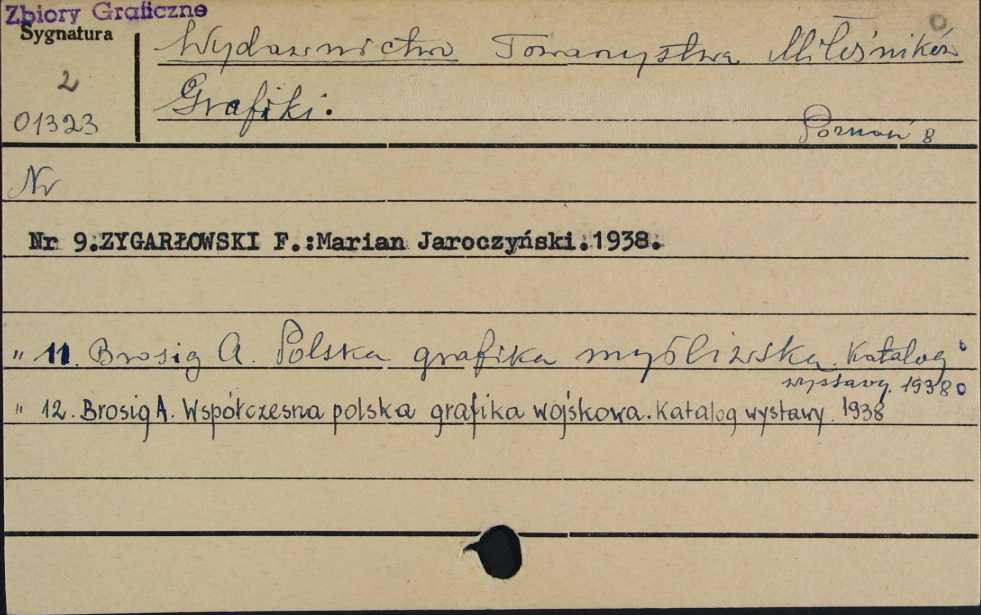 Zbiory Graficzne
Sygnatura
2
01323
Wydawnictwo Towarzystwa Miłośników
Grafiki.
Poznań 8
Nr
Nr 9.ZYGARŁOWSKI F.:Marian Jaroczyński.1938.
" 11. Brosig A. Polska grafika myśliwska. Katalog
wystawy. 1938
" 12. Brosig A. Współczesna polska grafika wojskowa. Katalog wystawy. 1938